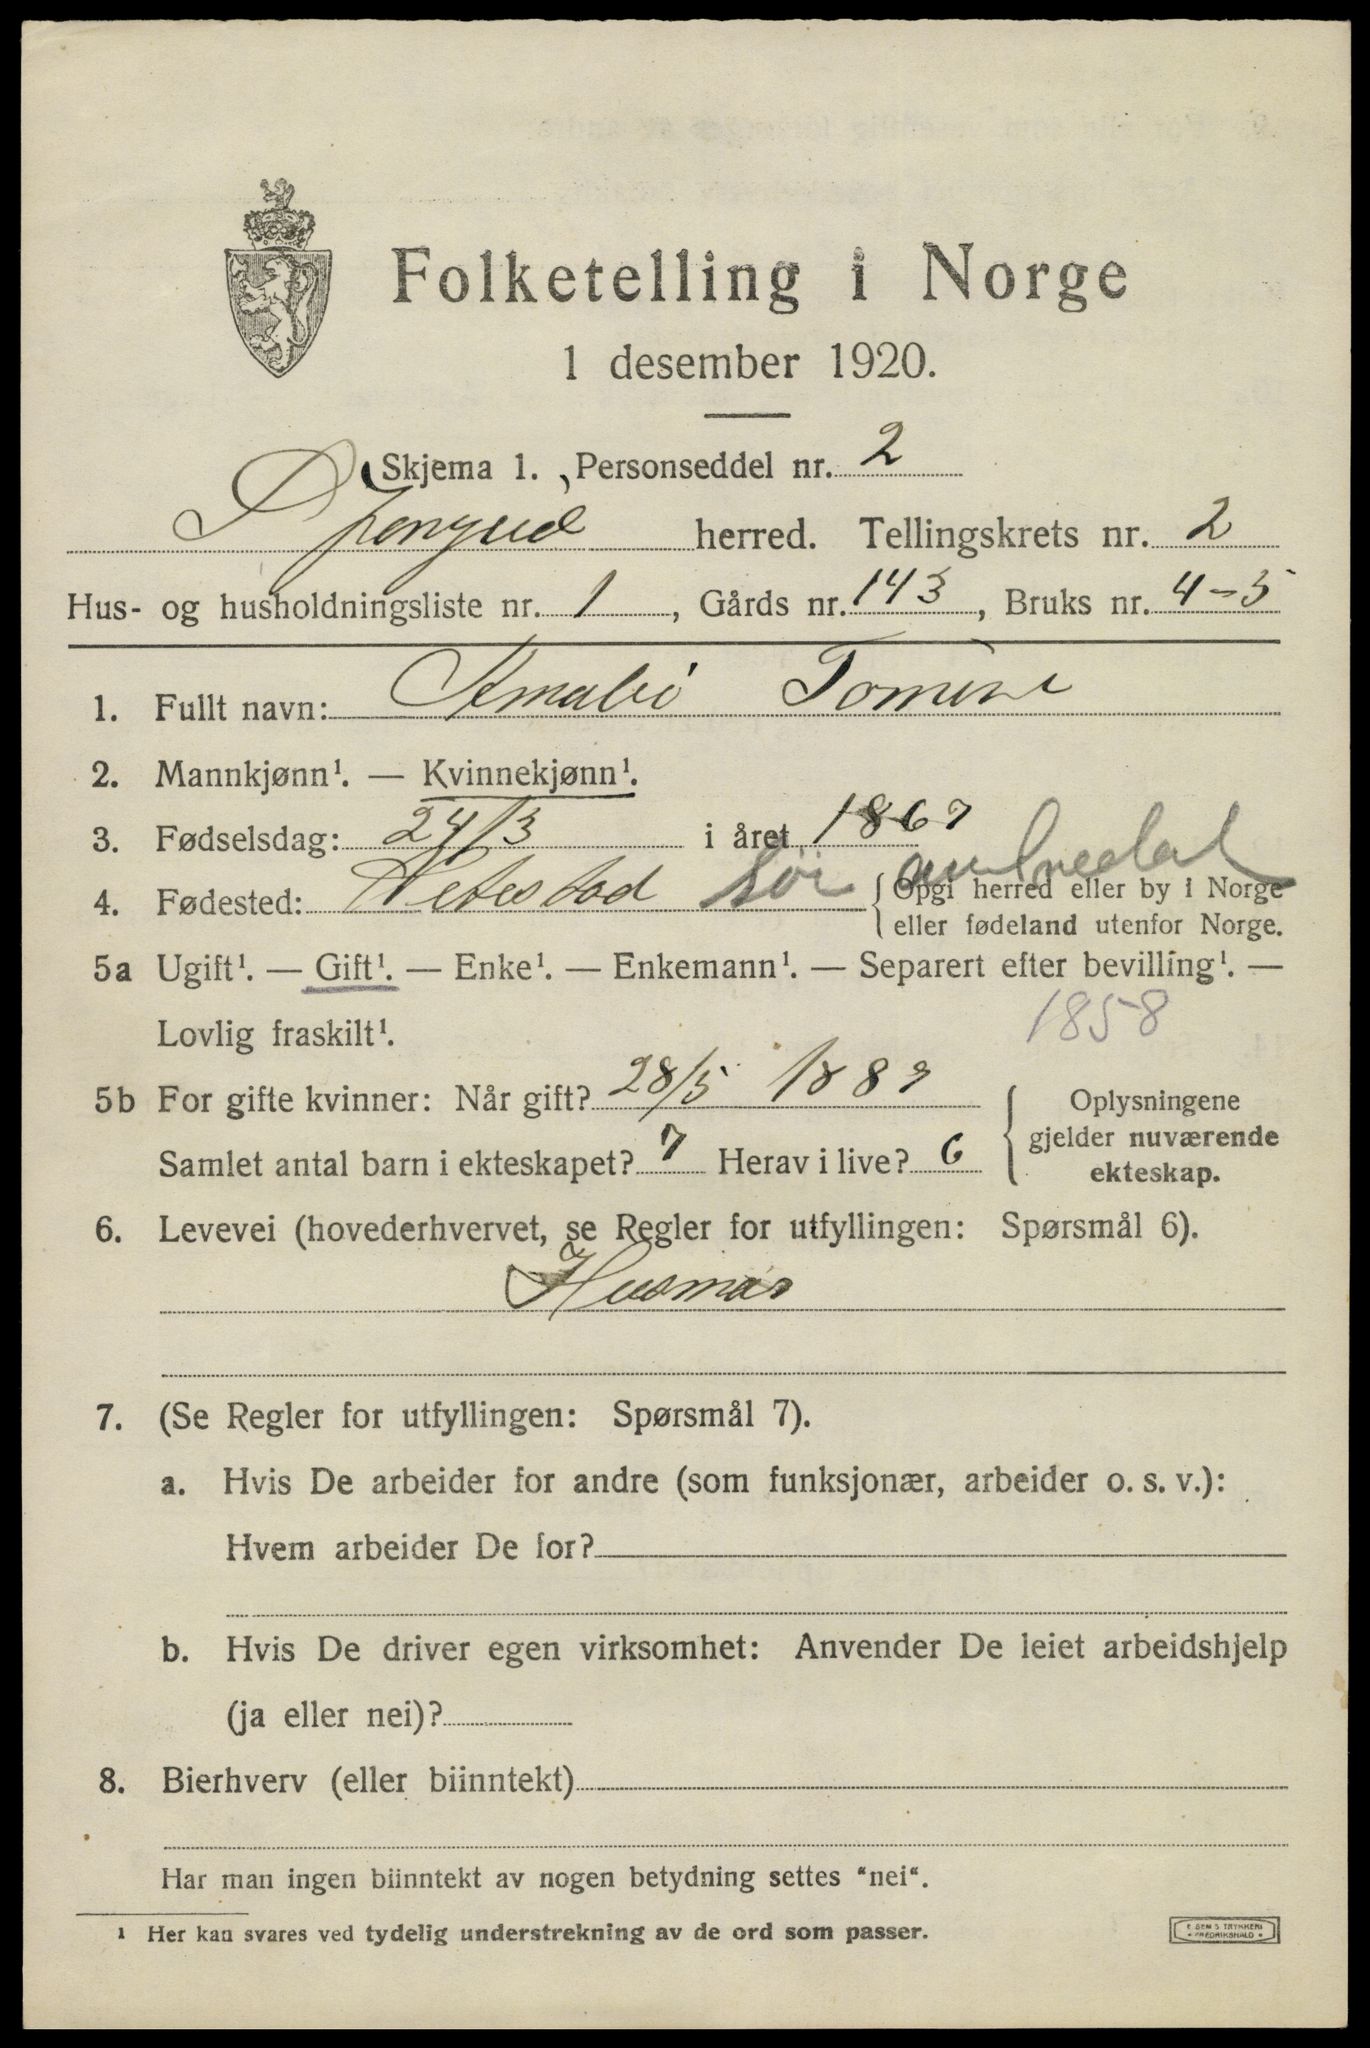 Folketelling i Norge
1 desember 1920.
Skjema 1. Personseddel nr. 2
herred. Tellingskrets nr. 2
Hus- og husholdningsliste nr. 1, Gårds nr. 143, Bruks nr. 4-5
1. Fullt navn:
2. Mannkjønn¹. — Kvinnekjønn¹.
3. Fødselsdag: 24/3 i året 1867
4. Fødested: {Opgi herred eller by i Norge
eller fødeland utenfor Norge.
5a Ugift¹. — Gift¹. — Enke¹. — Enkemann¹. — Separert efter bevilling¹. —
Lovlig fraskilt¹.
1858
5b For gifte kvinner: Når gift? 28/5 1889
Samlet antal barn i ekteskapet? 7 Herav i live? 6
{Oplysningene
gjelder nuværende
ekteskap.
6. Levevei (hovederhvervet, se Regler for utfyllingen: Spørsmål 6).
Husmor
7. (Se Regler for utfyllingen: Spørsmål 7).
a. Hvis De arbeider for andre (som funksjonær, arbeider o. s. v.):
Hvem arbeider De for?
b. Hvis De driver egen virksomhet: Anvender De leiet arbeidshjelp
(ja eller nei)?
8. Bierhverv (eller biinntekt)
Har man ingen biinntekt av nogen betydning settes "nei".
¹ Her kan svares ved tydelig understrekning av de ord som passer.
E SEM'S TRYKKERI
• FREDRIKSHALD •